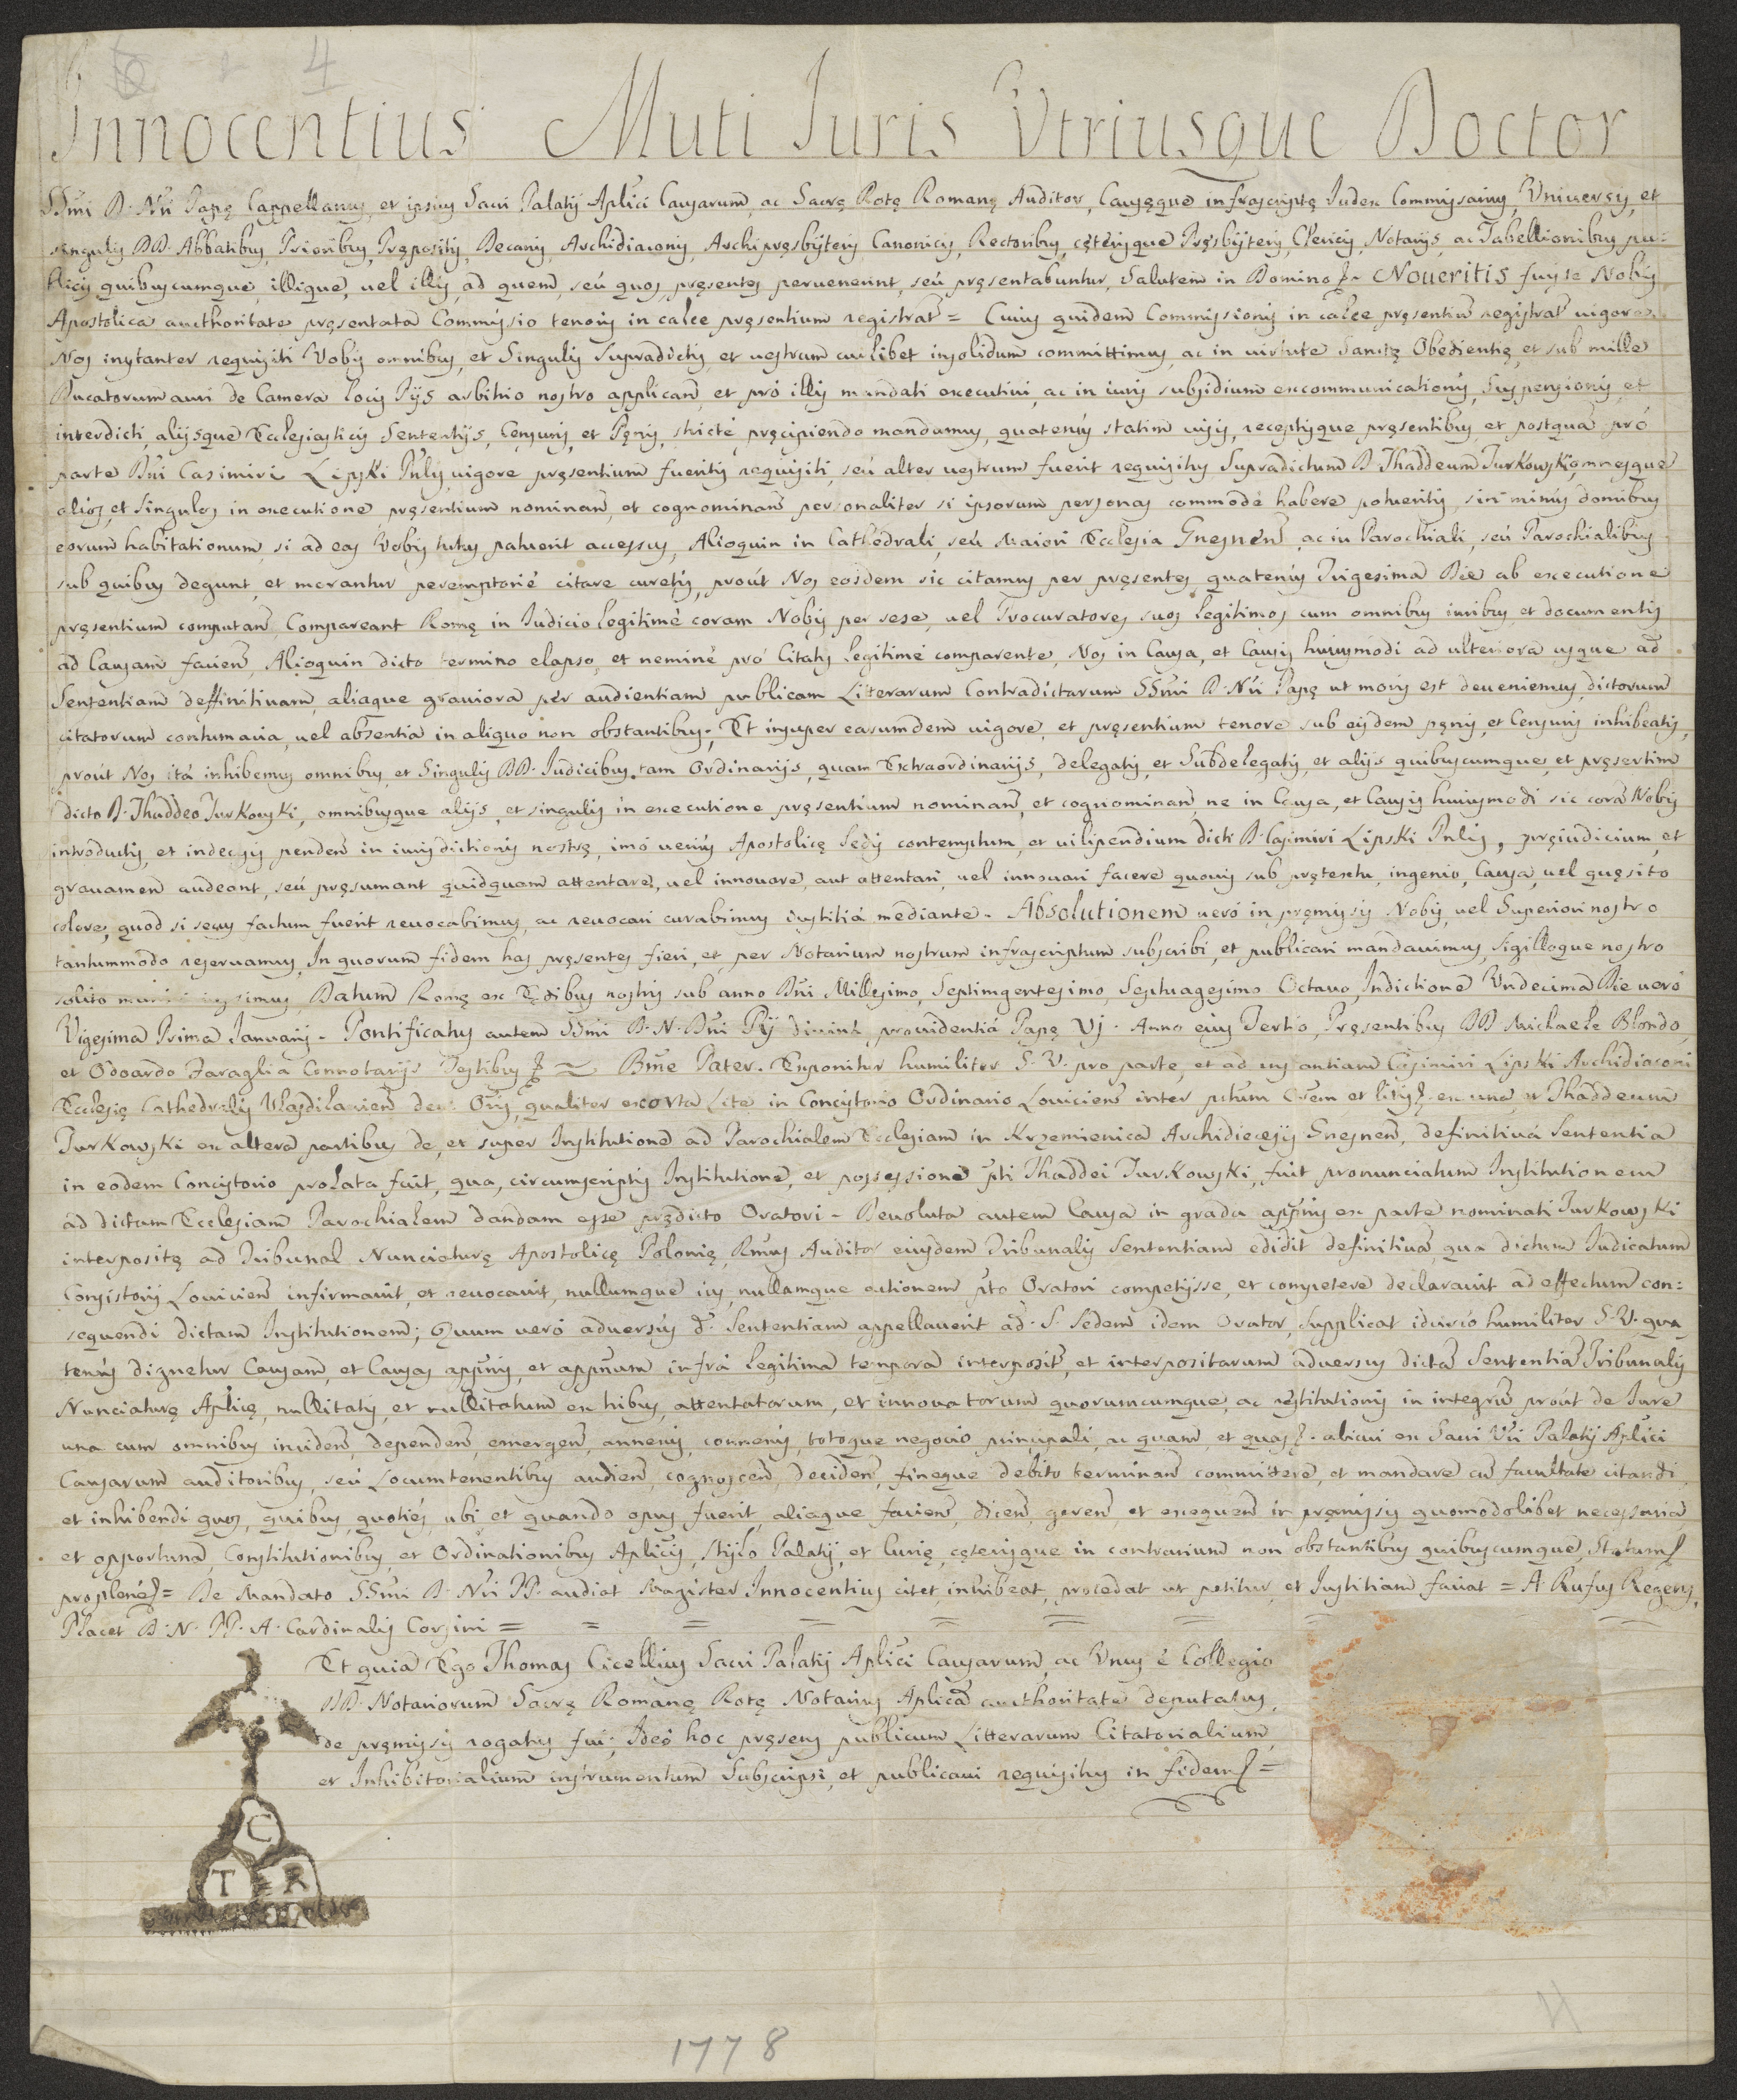 4
Innocentius Muti Iuris Utriusque Doctor
SSmi D. Nri Papę Cappellanus, et ipsius Sacri Palatij Aplici Causarum, ac Sacrę Rotę Romanę Auditor, Causęque infrascriptę Iudex Commissarius, Universis, et
singulis DD. Abbatibus, Prioribus, Prępositis, Decanis, Archidiaconis, Archipręsbijteris, Canonicis, Rectoribus, cęterisque Pręsbijteris, Clericis, Notarijs, ac Tabellionibus pu-
blicis quibuscumque, illique, vel illis, ad quem, seù quos pręsentes pervenerint, seù pręsentabuntur, Salutem in Domino. Noveritis fuisse Nobis
Apostolica aucthoritate pręsentata Commissio tenoris in calce pręsentium registrat = Cuius quidem Commissionis in calce pręsentiu registrat vigore
Nos instanter requisiti Vobis omnibus, et Singulis supradictis, et vestrum cuilibet insolidum committimus, ac in virtute Sanctę Obedientię, et sub mille
Ducatorum auri de Camera locis Pijs arbitrio nostro applican, et prò illis mandati executivi, ac in iuris subsidium excommunicationis, suspensionis, et
interdicti, alijsque Ecclesiasticis Sententijs, Censuris, et Pęnis, strictè pręcipiendo mandamus, quatenùs statim visis, receptisque pręsentibus, et postquà prò
parte Dni Casimiri Lipski Pnlis vigore pręsentium fueritis requisiti, seù alter vestrum fuerit requisitus Supradictum D. Thaddeum Turkowski, omnesque
alios, et singulos in executione pręsentium nominan, et cognominan personaliter si ipsorum personas commodè habere poteritis, sin minùs domibus
eorum habitationum, si ad eas Vobis tutus patuerit accessus, Alioquin in Cathedrali, seù Maiori Ecclesia Gnesnen, ac in Parochiali, seù Parochialibus
sub quibus degunt, et morantur peremptoriè citare curetis, proùt Nos eosdem sic citamus per pręsentes, quatenùs Trigesima Die ab executione
pręsentium computan, Compareant Romę in Iudicio legitimè coram Nobis per sese, vel Procuratores suos legitimos cum omnibus iuribus, et documentis
ad Causam facien, Alioquin dicto termino elapso, et neminè prò Citatis legitimè comparente, Nos in Causa, et Causis huiusmodi ad ulteriora usque ad
Sententiam deffinitivam, aliaque graviora pèr audientiam publicam Literarum Contradictarum SSmi D. Nri Papę ut moris est deveniemus, dictorum
citatorum contumacia, vel absentia in aliquo non obstantibus. Et insuper earumdem vigore, et pręsentium tenore sub eisdem pęnis, et Censuris inhibeatis,
proùt Nos ità inhibemus omnibus, et Singulis DD. Iudicibus, tam Ordinarijs, quam Extraordinarijs, delegatis, et Subdelegatis, et alijs quibuscumque, et pręsertim
dicto D. Thaddeo Turkowski, omnibusque alijs, et singulis in executione pręsentium nominan, et cognominan, ne in Causa, et Causis huiusmodi sic corà Nobis
introductis, et indecisis penden in iurisdictionis nostrę, imò veriùs Apostolicę Sedis contemptum, et vilipendium dicti D. Casimiri Lipski Pnlis, pręiudicium, et
gravamen audeant, seù pręsumant quidquam attentare, vel innovare, aut attentari, vel innovari facere quovis sub prętextu, ingenio, Causa, vel quęsito
colore, quod si secus factum fuerit revocabimus, ac revocari curabimus iustitià mediante. Absolutionem verò in pręmissis Nobis, vel Superiori nostro
tantummodo reservamus, In quorum fidem has pręsentes fieri, et per Notarium nostrum infrascriptum subscribi, et publicari mandavimus, sigilloque nostro
solito Datum Romę ex Ędibus nostris sub anno Dni Millesimo, Septingentesimo, Septuagesimo Octavo, Indictione Undecima Die verò
Vigesima Prima Ianuarij. Pontificatus autem SSmi D. N. Dni Pij divinà providentià Papę VI. Anno eius Tertio, Pręsentibus DD Michaele Blondo,
et Odoardo Faraglia Connotarijs Testibus Bme Pater. Exponitur humiliter S. V. pro parte, et ad instantiam Casimiri Lipski Archidiaconi
Ecclesię Cathedralis Vladislavien Oris, qualiter exorta Lite in Concistorio Ordinario Lovicien inter pttum Orem et litis ex una, et Thaddeum
Turkowski ex altera partibus de, et super Institutione ad Parochialem Ecclesiam in Krzemienica Archidiecesis Gnesnen, definitivà Sententia
in eodem Concistorio prolata fuit, qua, circumscriptis Institutione, et possessione pti Thaddei Turkowski, fuit pronunciatum Institutionem
ad dictam Ecclesiam Parochialem dandam esse prędicto Oratori. Devoluta autem Causa in gradu appnis ex parte nominati Turkowski
interpositę ad Tribunal Nunciaturę Apostolicę Polonię, Rmus Auditor eiusdem Tribunalis Sententiam edidit definitivà, qua dictum Iudicatum
Consistorij Lovicien infirmavit, et revocavit, nullumque ius, nullamque actionem pto Oratori competijsse, et competere declaravit ad effectum con:
sequendi dictam Institutionem; Quum verò adversùs d. Sententiam appellaverit ad S. Sedem idem Orator, supplicat idcircò humiliter S. V. qua
tenùs dignetur Causam, et Causas appnis, et appnum infrà legitima tempora interposit, et interpositarum adversus dictà Sententià Tribunalis
Nunciaturę Aplicę, nullitatis, et nullitatum ex hibus, attentatorum, et innovatorum quorumcumque, ac restitutionis in integru proùt de Iure
una cum omnibus inciden, dependen, emergen, annexis, connexis, totoque negocio principali, ac quam, et quas alicui ex Sacri Vri Palatij Aplici
Causarum auditoribus, seù Locumtenentibus audien, cognoscen, deciden, fineque debito terminan committere, et mandare cu facultate citandi,
et inhibendi quos, quibus, quotiès, ubi et quando opus fuerit, aliaque facien, dicen, geren et exequen in pręmissis quomodolibet necessaria,
et opportuna, Constitutionibus, et Ordinationibus Aplicis, stijlo Palatij, et Curię, cęterisque in contrarium non obstantibus quibuscumque, Statum
proplenè = De Mandato SSmi D. Nri PP. audiat Magister Innocentius, citet, inhibeat, procedat ut petitur, et Iustitiam faciat = A. Rufus Regens,
Placet D. N. PP. A. Cardinalis Corsini =
Et quia Ego Thomas Cicellius Sacri Palatij Aplici Causarum, ac Unus è Collegio
DD. Notariorum Sacrę Romanę Rotę Notarius Aplicà aucthoritate deputatus,
de pręmissis rogatus fui; Ideò hoc pręsens publicum Litterarum Citatorialium,
et Inhibitorialium instrumentum Subscripsi, et publicavi requisitus in fidem =
C
T R
1778